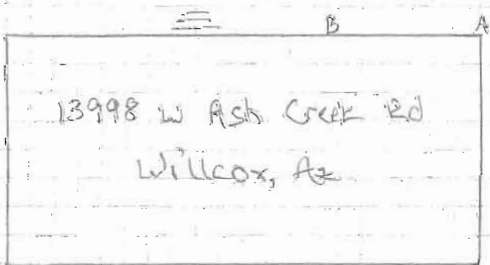 B A
13998 W Ash Creek Rd
Willcox, Az